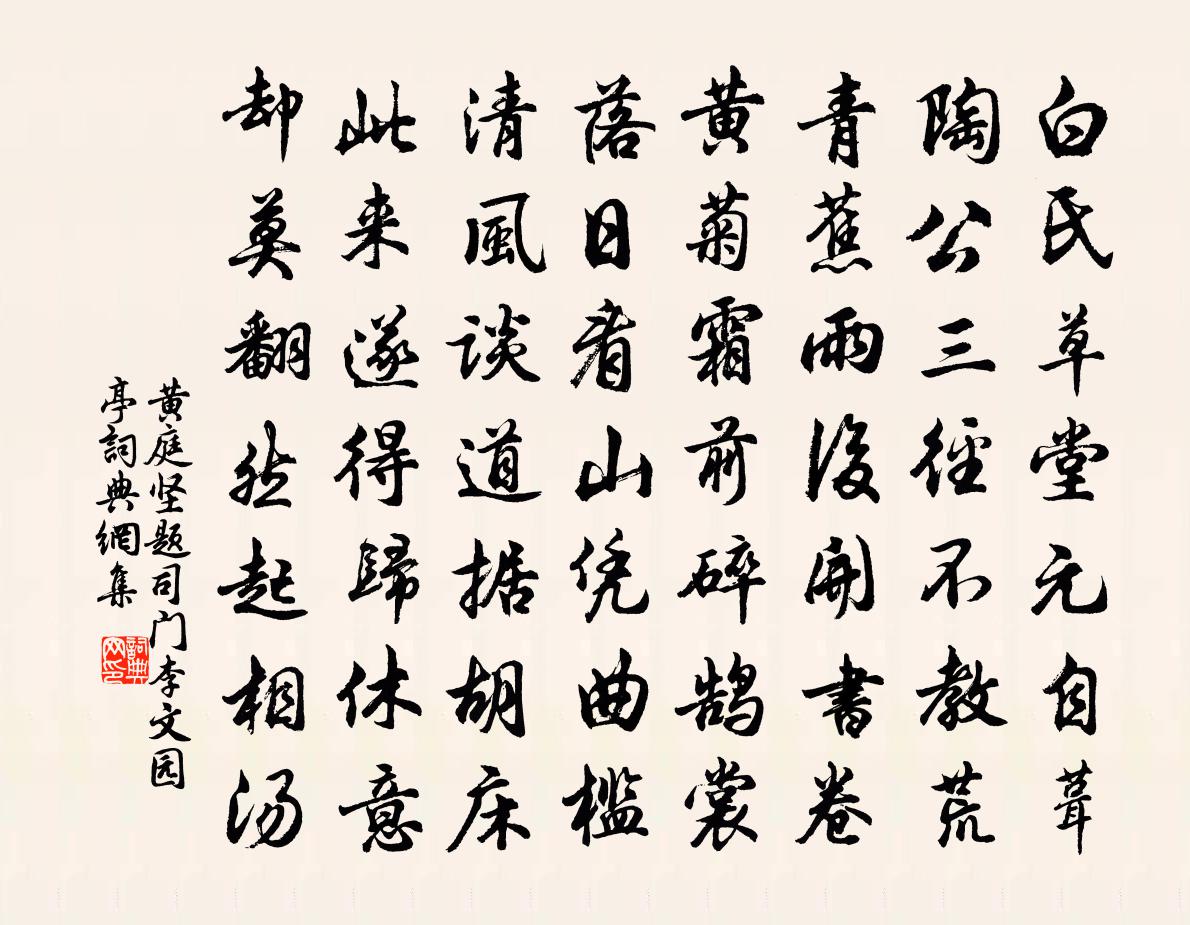 白氏草堂元自葺
陶公三徑不教荒
青蕉雨後開書卷
黄菊霜前碎鹄裳
落日看山凭曲槛
清風談道据胡床
此来遂得歸休意
却莫翻然起相汤
黄庭坚题司门李文园
亭詞典網集
詞典网印